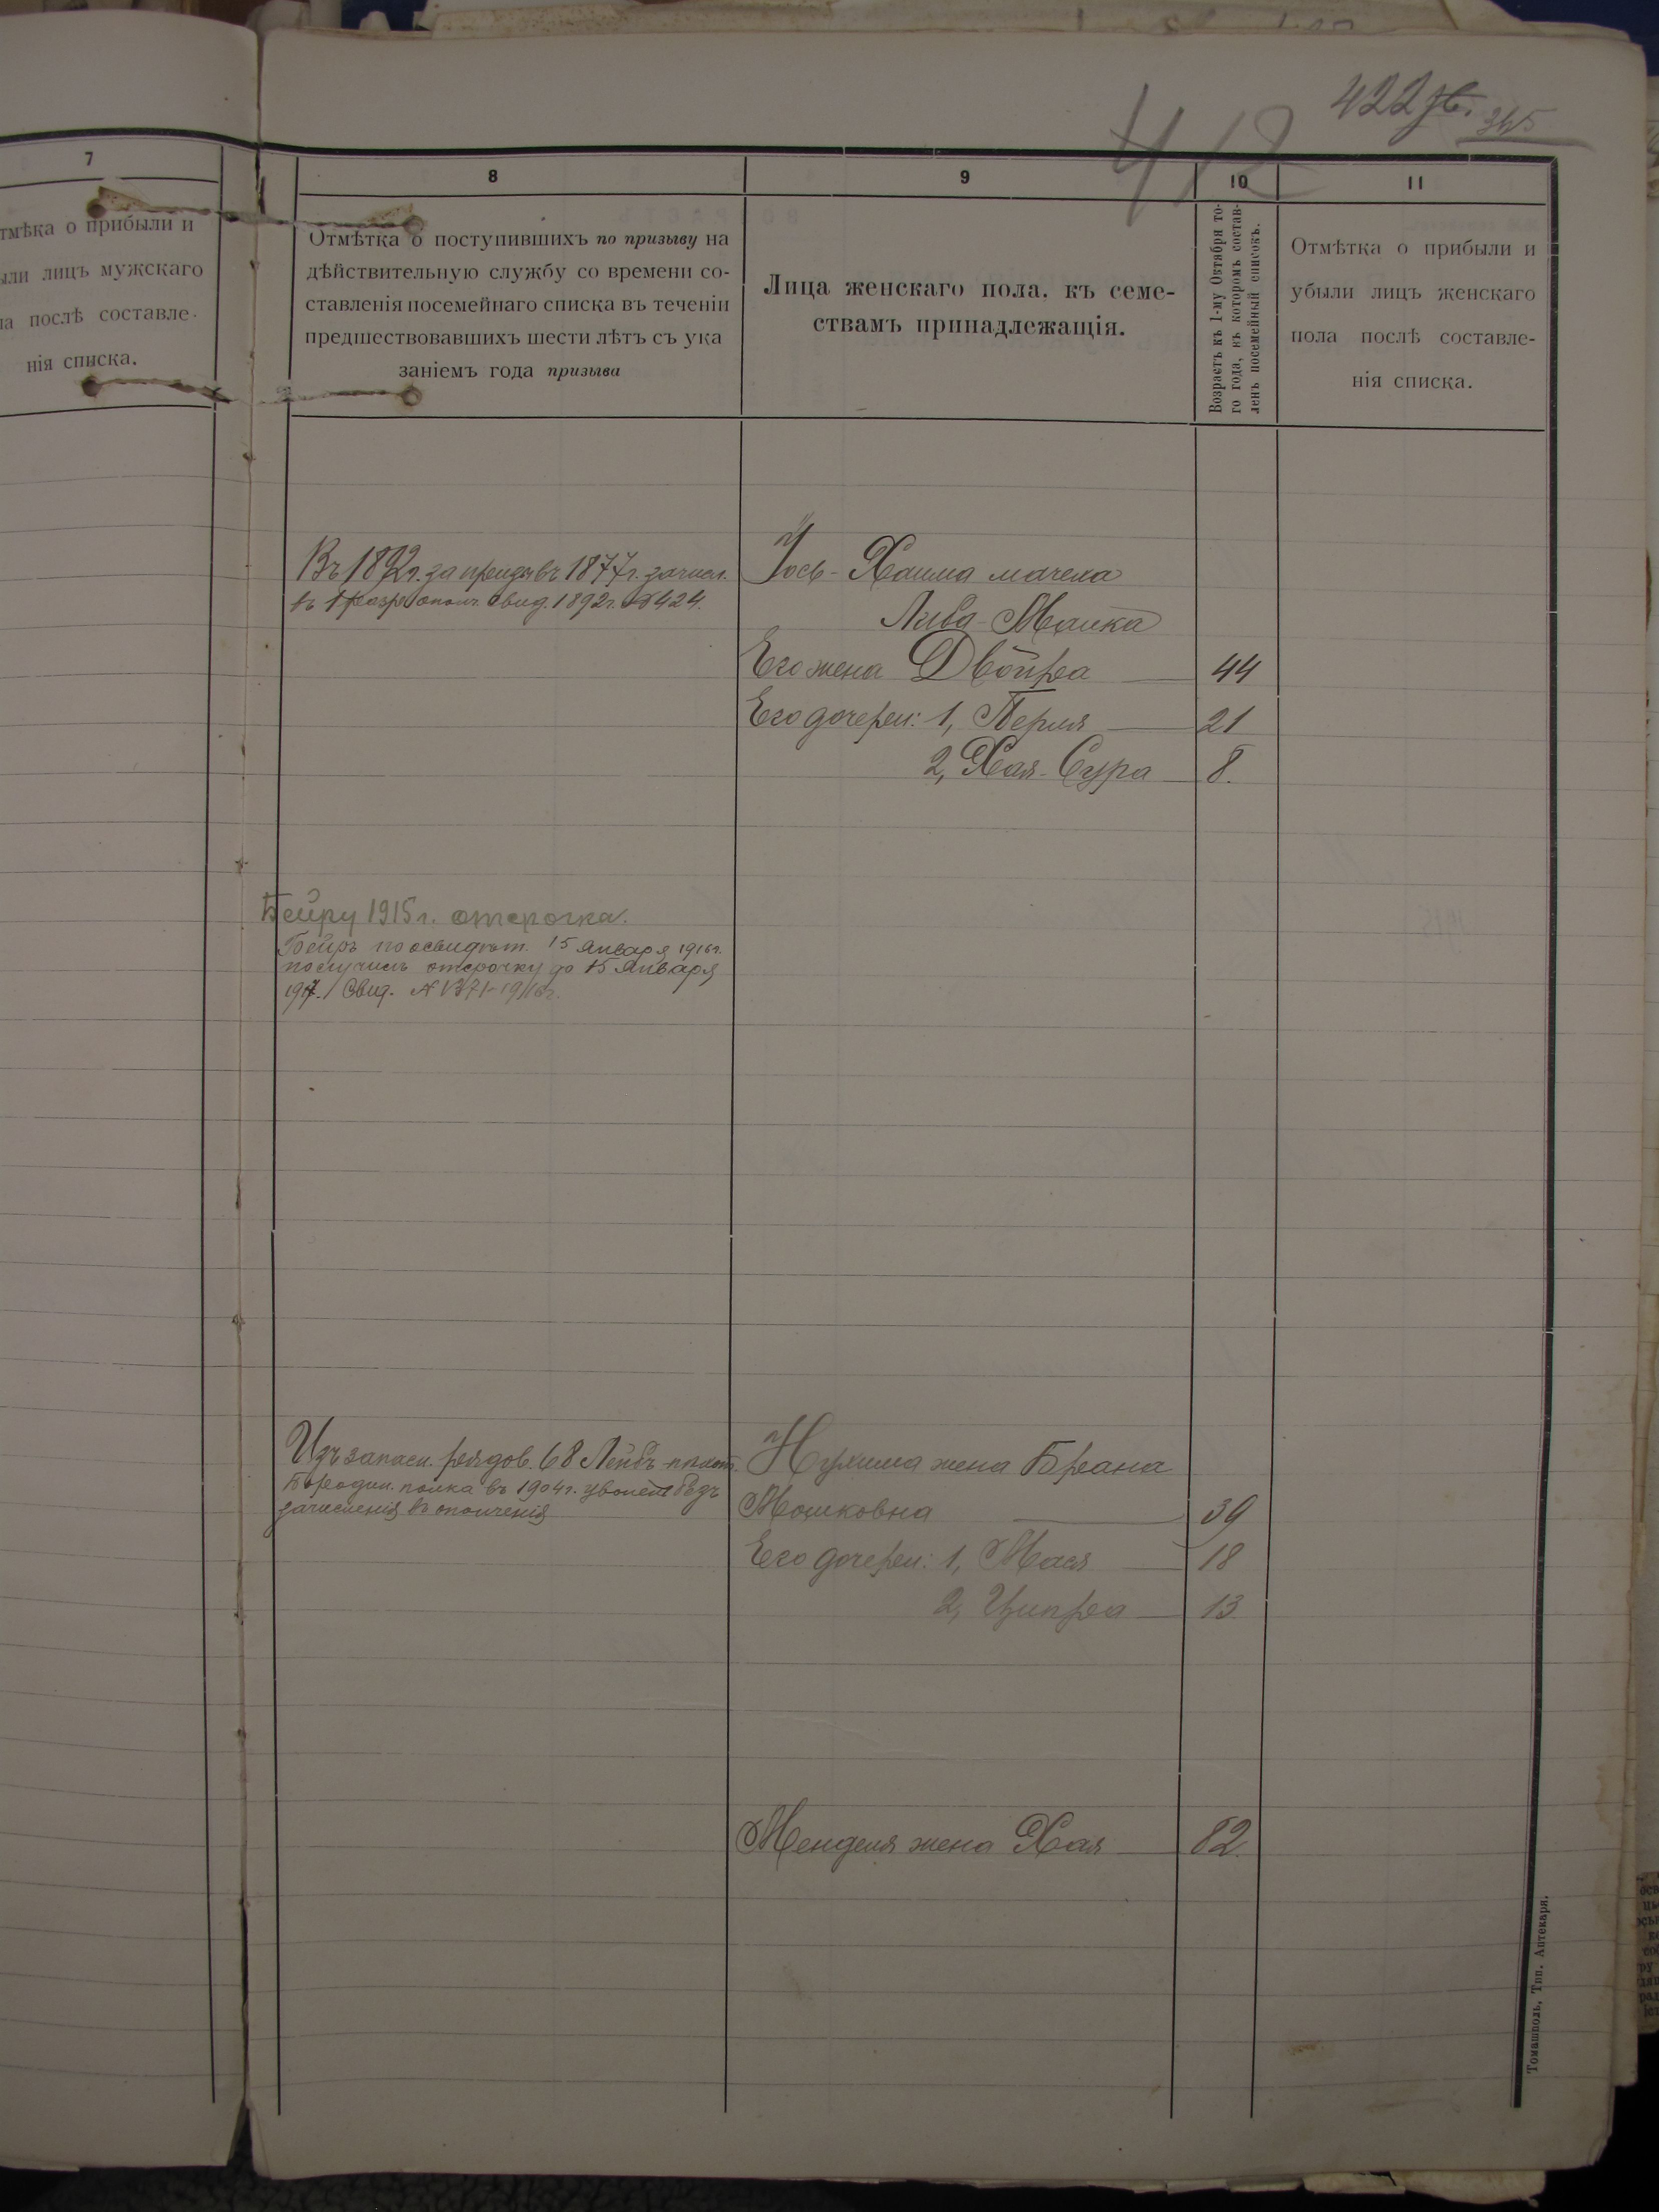 422 об.
345
412
7
8
9
10
11
тмѣка о прибыли и
ыли лицъ мужскаго
ла послѣ составле-
нія списка.
Отмѣтка о поступившихъ по призыву на
дѣйствительную службу со времени со-
ставленія посемейнаго списка въ теченіи
предшествовавшихъ шести лѣтъ съ ука
заніемъ года призыва
Лица женскаго пола, къ семе-
ствамъ принадлежащія.
Возрастъ къ 1-му Октября то-
го года, въ которомъ состав-
ленъ посемейный списокъ.
Отмѣтка о прибыли и
убыли лицъ женскаго
пола послѣ составле-
нія списка.
Въ 1892г. за призывъ 1877г. зачисл.
въ 1 разр. ополч. свид. 1892г. № 424.
Іось-Хаима мачеха
Лива-Малка
Его жена Двойра 44
Его дочери: 1, Перля 21
2, Хая-Сура 8.
Бейру 1915г. отсрочка.
Бейръ по освидѣт. 15 Января 1916г.
получилъ отсрочку до 15 Января
1917. Свид. № 1371-1916г.
Изъ запасн. рядов. 68 Лейбъ-пѣхот.
Бородин. полка въ 1904г. уволенъ безъ
зачисленія въ ополченія
Нухима жена Брана
Мошковна 39
Его дочери: 1, Мася 18
2, Ципра 13
Менделя жена Хая 82.
Томашполь, Тип. Аптекаря.